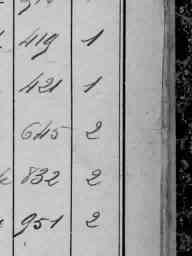 419 1
421 1
645 2
832 2
951 2